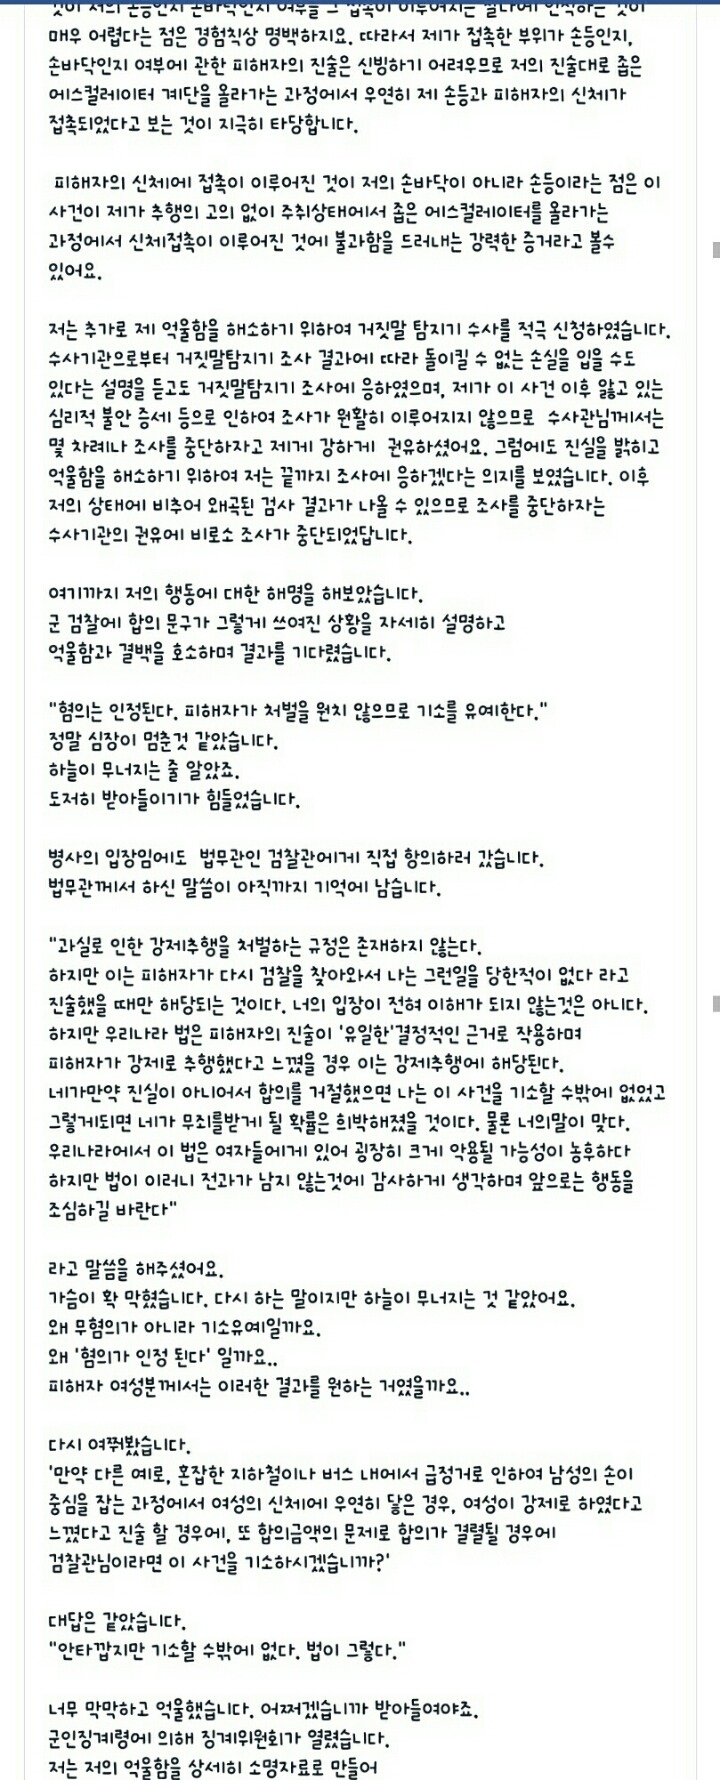 매우 어렵다는 점은 경험칙상 명백하지요. 따라서 제가 접촉한 부위가 손등인지,
손바닥인지 여부에 관한 피해자의 진술은 신빙하기 어려우므로 저의 진술대로 좁은
에스컬레이터 계단을 올라가는 과정에서 우연히 제 손등과 피해자의 신체가
접촉되었다고 보는 것이 지극히 타당합니다.
피해자의 신체에 접촉이 이루어진 것이 저의 손바닥이 아니라 손등이라는 점은 이
사건이 제가 추행의 고의 없이 주취상태에서 좁은 에스컬레이터를 올라가는
과정에서 신체접촉이 이루어진 것에 불과함을 드러내는 강력한 증거라고 볼수
있어요.
저는 추가로 제 억울함을 해소하기 위하여 거짓말 탐지기 수사를 적극 신청하였습니다.
수사기관으로부터 거짓말탐지기 조사 결과에 따라 돌이킬 수 없는 손실을 입을 수도
있다는 설명을 듣고도 거짓말탐지기 조사에 응하였으며, 제가 이 사건 이후 앓고 있는
심리적 불안 증세 등으로 인하여 조사가 원활히 이루어지지 않으므로 수사관님께서는
몇 차례나 조사를 중단하자고 제게 강하게 권유하셨어요. 그럼에도 진실을 밝히고
억울함을 해소하기 위하여 저는 끝까지 조사에 응하겠다는 의지를 보였습니다. 이후
저의 상태에 비추어 왜곡된 검사 결과가 나올 수 있으므로 조사를 중단하자는
수사기관의 권유에 비로소 조사가 중단되었답니다.
여기까지 저의 행동에 대한 해명을 해보았습니다.
군 검찰에 합의 문구가 그렇게 쓰여진 상황을 자세히 설명하고
억울함과 결백을 호소하며 결과를 기다렸습니다.
"혐의는 인정된다. 피해자가 처벌을 원치 않으므로 기소를 유예한다."
정말 심장이 멈춘것 같았습니다.
하늘이 무너지는 줄 알았죠.
도저히 받아들이기가 힘들었습니다.
병사의 입장임에도 법무관인 검찰관에게 직접 항의하러 갔습니다.
법무관께서 하신 말씀이 아직까지 기억에 남습니다.
"과실로 인한 강제추행을 처벌하는 규정은 존재하지 않는다.
하지만 이는 피해자가 다시 검찰을 찾아와서 나는 그런일을 당한적이 없다 라고
진술했을 때만 해당되는 것이다. 너의 입장이 전혀 이해가 되지 않는것은 아니다.
하지만 우리나라 법은 피해자의 진술이 '유일한'결정적인 근거로 작용하며
피해자가 강제로 추행했다고 느꼈을 경우 이는 강제추행에 해당된다.
네가만약 진실이 아니어서 합의를 거절했으면 나는 이 사건을 기소할 수밖에 없었고
그렇게되면 네가 무죄를받게 될 확률은 희박해졌을 것이다. 물론 너의말이 맞다.
우리나라에서 이 법은 여자들에게 있어 굉장히 크게 악용될 가능성이 농후하다
하지만 법이 이러니 전과가 남지 않는것에 감사하게 생각하며 앞으로는 행동을
조심하길 바란다"
라고 말씀을 해주셨어요.
가슴이 확 막혔습니다. 다시 하는 말이지만 하늘이 무너지는 것 같았어요.
왜 무혐의가 아니라 기소유예일까요.
왜 '혐의가 인정 된다' 일까요..
피해자 여성분께서는 이러한 결과를 원하는 거였을까요..
다시 여쭤봤습니다.
'만약 다른 예로, 혼잡한 지하철이나 버스 내에서 급정거로 인하여 남성의 손이
중심을 잡는 과정에서 여성의 신체에 우연히 닿은 경우, 여성이 강제로 하였다고
느꼈다고 진술 할 경우에, 또 합의금액의 문제로 합의가 결렬될 경우에
검찰관님이라면 이 사건을 기소하시겠습니까?'
대답은 같았습니다.
"안타깝지만 기소할 수밖에 없다. 법이 그렇다."
너무 막막하고 억울했습니다. 어쩌겠습니까 받아들여야죠.
군인징계령에 의해 징계위원회가 열렸습니다.
저는 저의 억울함을 상세히 소명자료로 만들어